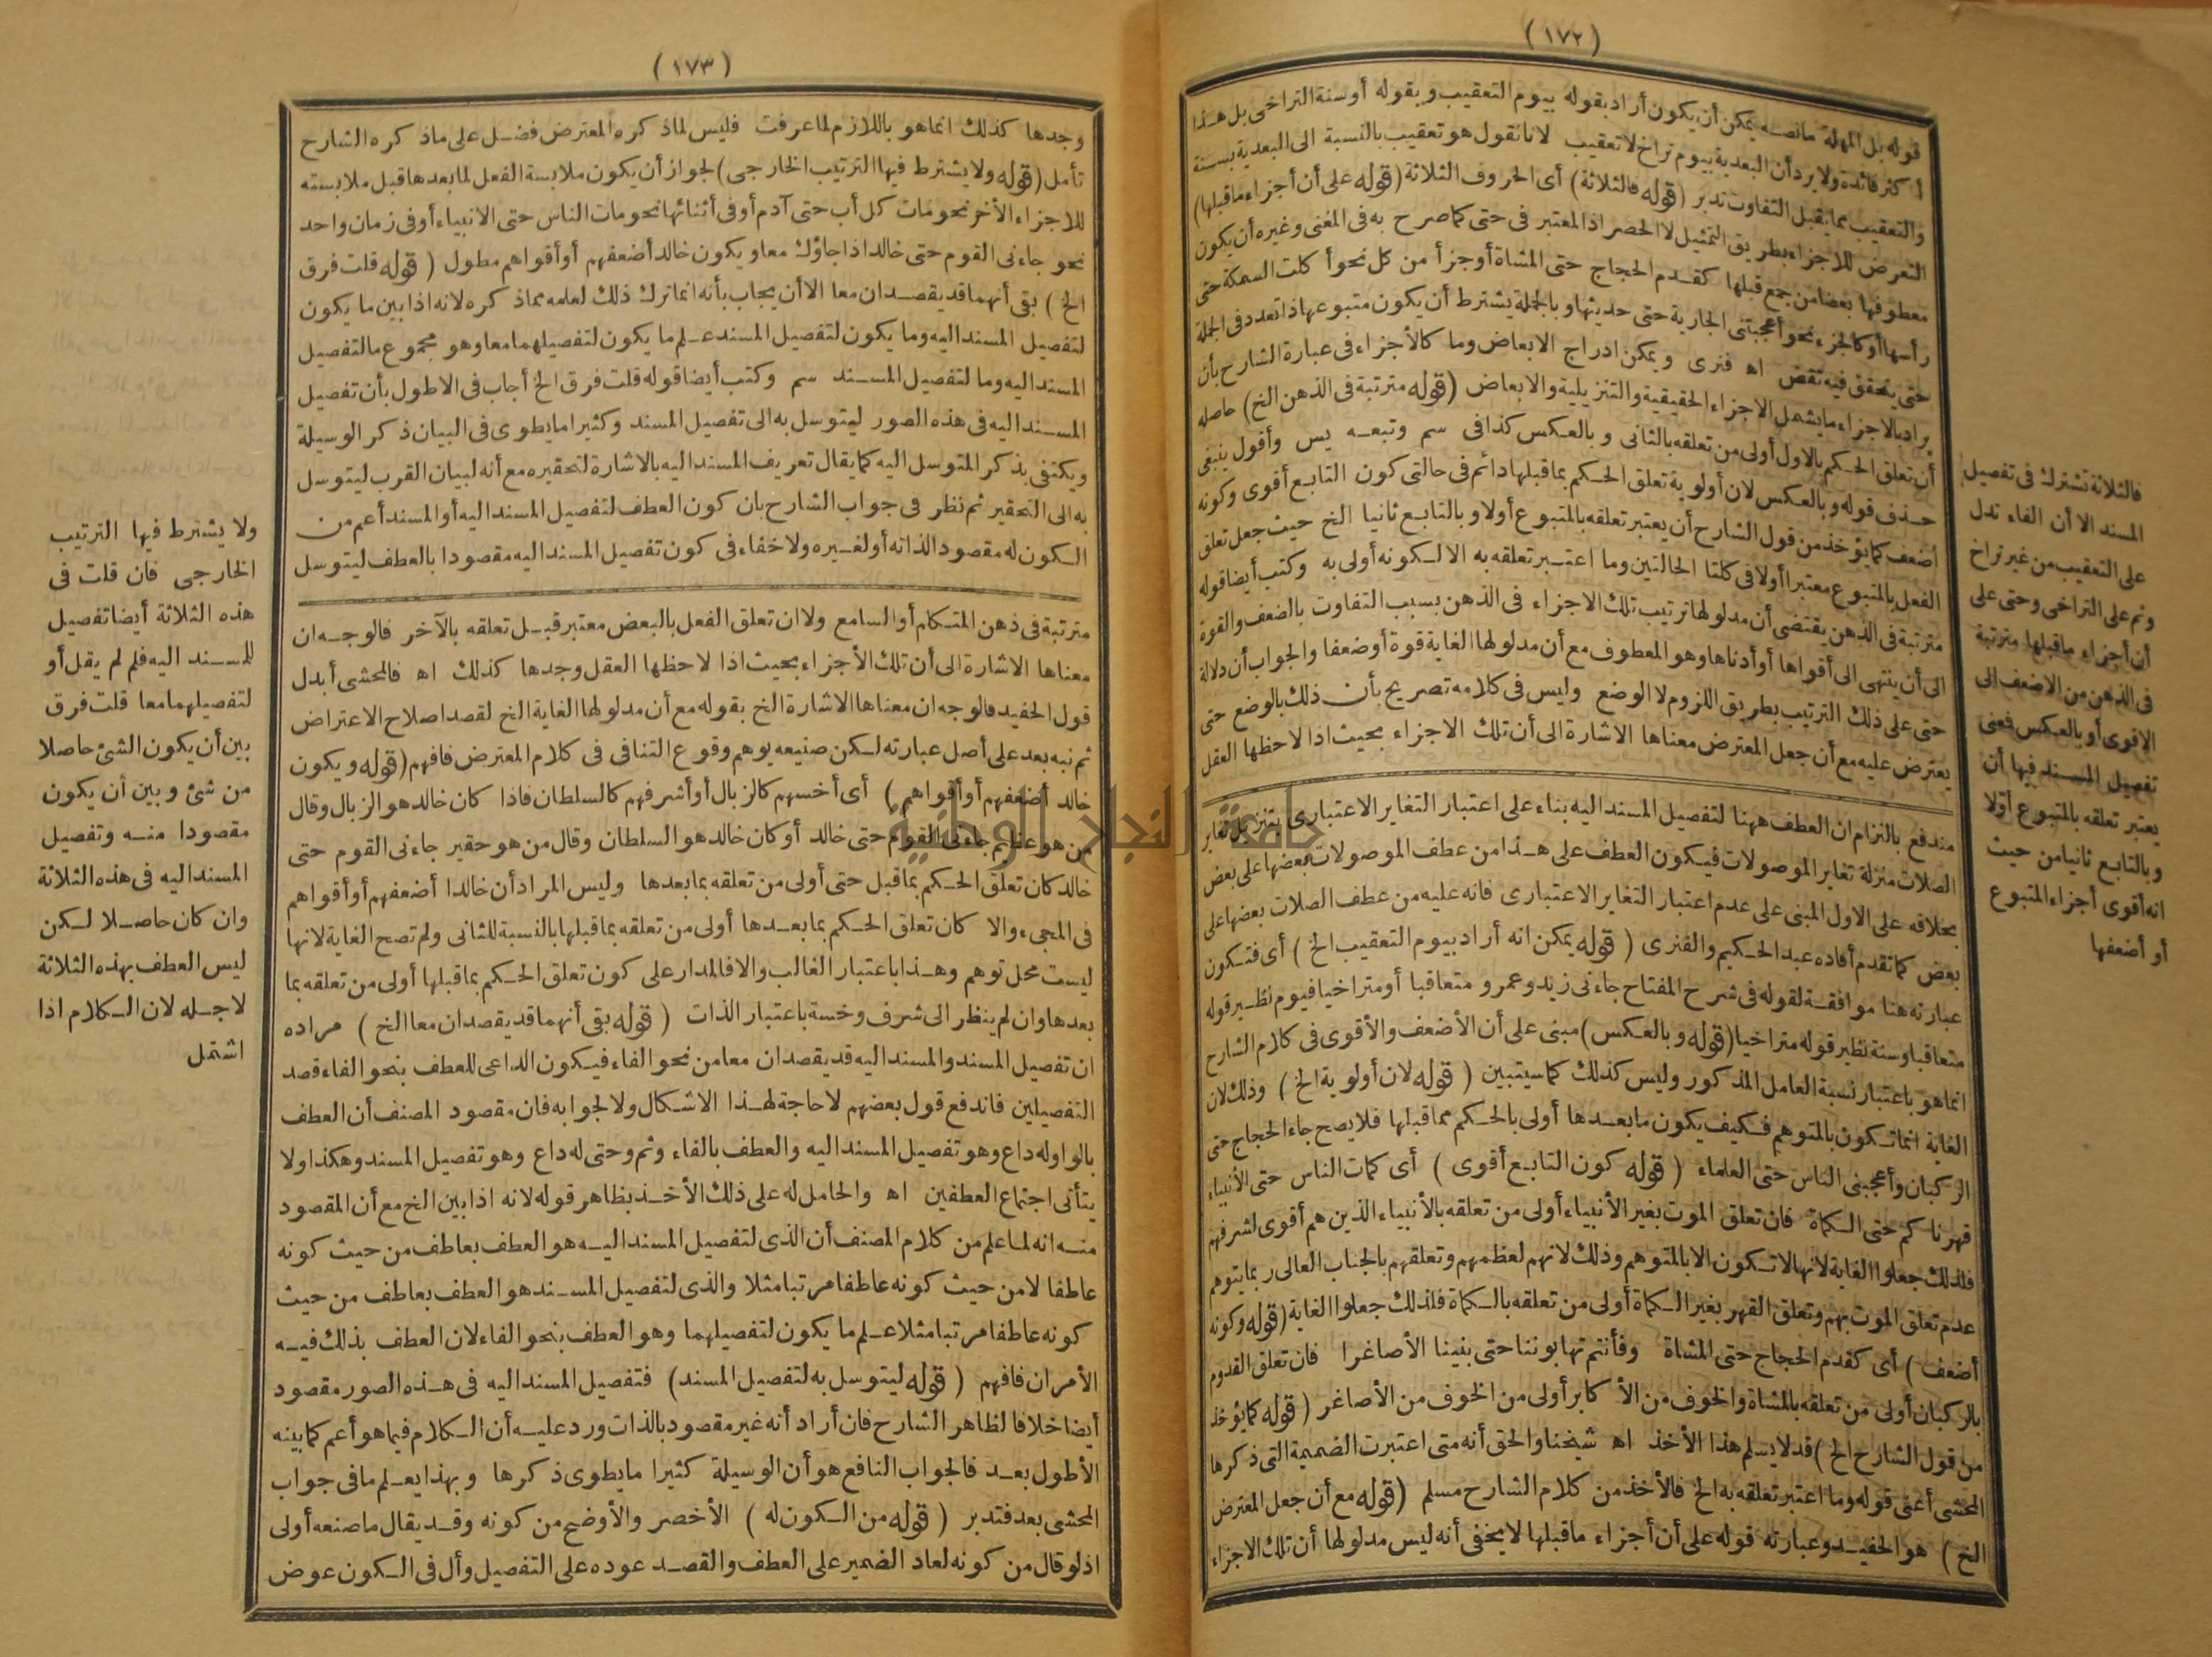 (١٧٢)
قوله بل المهلة مانصه يمكن أن يكون أراد بقوله بيوم التعقيب وبقوله أوسنة التراخى بل هذا
أكثر فائدة ولا يرد أن البعدية بيوم تراخ لا تعقيب لانا نقول هو تعقيب بالنسبة الى البعدية بسنة
والتعقيب مما يقبل التفاوت تدبر (قوله فالثلاثة) أى الحروف الثلاثة (قوله على أن أجزاء ماقبلها)
التعرض للاجزاء بطريق التمثيل لا الحصر اذ المعتبر فى حتى كما صرح به فى المغنى وغيره أن يكون
معطوفها بعضا من جمع قبلها كقدم الحجاج حتى المشاة أو جزأ من كل نحو أكلت السمكة حتى
رأسها أو كالجزء نحو أعجبتنى الجارية حتى حديثها وبالجملة يشترط أن يكون متبوعها ذا تعدد فى الجملة
حتى يتحقق فيه تقض اه فنرى ويمكن ادراج الابعاض وما كالأجزاء فى عبارة الشارح بأن
يراد بالاجزاء ما يشمل الاجزاء الحقيقية والتنزيلية والابعاض (قوله مترتبة فى الذهن الخ) حاصله
أن تعلق الحكم بالاول أولى من تعلقه بالثانى وبالعكس كذا فى سم وتبعه يس وأقول ينبغى
حذف قوله وبالعكس لان أولوية تعلق الحكم بما قبلها دائم فى حالتى كون التابع أقوى وكونه
أضعف كما يؤخذ من قول الشارح أن يعتبر تعلقه بالمتبوع أولا وبالتابع ثانيا الخ حيث جعل تعلق
الفعل بالمتبوع معتبرا أولا فى كلتا الحالتين وما اعتبر تعلقه به الا لكونه أولى به وكتب أيضا قوله
مترتبة فى الذهن يقتضى أن مدلولها ترتيب تلك الاجزاء فى الذهن بسبب التفاوت بالضعف والقوة
الى أن ينتهى الى أقواها أو أدناها وهو المعطوف مع أن مدلولها الغاية قوة أو ضعفا والجواب أن دلالة
حتى على ذلك الترتيب بطريق اللزوم لا الوضع وليس فى كلامه تصريح بأن ذلك بالوضع حتى
يعترض عليه مع أن جعل المعترض معناها الاشارة الى أن تلك الاجزاء بحيث اذا لاحظها العقل
مندفع بالتزام ان العطف ههنا لتفصيل المسند اليه بناء على اعتبار التغاير الاعتبارى بتنزيل تغاير
الصلات منزلة تغاير الموصولات فيكون العطف على هذا من عطف الموصولات بعضها على بعض
بخلافه على الاول المبنى على عدم اعتبار التغاير الاعتبارى فانه عليه من عطف الصلات بعضها على
بعض كما تقدم أفاده عبد الحكيم والفنرى (قوله يمكن انه أراد بيوم التعقيب الخ) أى فتكون
عبارته هنا موافقة لقوله فى شرح المفتاح جاءنى زيد وعمرو متعاقبا أو متراخيا فيوم نظير قوله
متعاقبا وسنة نظير قوله متراخيا (قوله وبالعكس) مبنى على أن الأضعف والأقوى فى كلام الشارح
انما هو باعتبار نسبة العامل المذكور وليس كذلك كما سيتبين (قوله لان أولوية الخ) وذلك لان
الغاية انما تكون بالمتوهم فكيف يكون ما بعدها أولى بالحكم مما قبلها فلا يصح جاء الحجاج حتى
الركبان وأعجبنى الناس حتى العلماء (قوله كون التابع أقوى) أى كمات الناس حتى الأنبياء
قهرنا كم حتى الكماة فان تعلق الموت بغير الأنبياء أولى من تعلقه بالأنبياء الذين هم أقوى لشرفهم
فلذلك جعلوا الغاية لانها لا تكون الا بالمتوهم وذلك لانهم لعظمهم وتعلقهم بالجناب العالى ربما يتوهم
عدم تعلق الموت بهم وتعلق القهر بغير الكماة أولى من تعلقه بالكماة فلذلك جعلوا الغاية (قوله وكونه
أضعف) أى كقدم الحجاج حتى المشاة وفأنتم تهابوننا حتى بنينا الأصاغرا فان تعلق القدوم
بالركبان أولى من تعلقه بالمشاة والخوف من الأكابر أولى من الخوف من الأصاغر (قوله كما يؤخذ
من قول الشارح الخ) قد لا يسلم هذا الأخذ اه شيخنا والحق أنه متى اعتبرت الضميمة التى ذكرها
المحشى أعنى قوله وما اعتبر تعلقه به الخ فالأخذ من كلام الشارح مسلم (قوله مع أن جعل المعترض
الخ) هو الحفيد وعبارته قوله على أن أجزاء ماقبلها لا يخفى أنه ليس مدلولها أن تلك الاجزاء
فالثلاثة تشترك فى تفصيل
المسند الا أن الفاء تدل
على التعقيب من غير تراخ
وثم على التراخى وحتى على
أن أجزاء ماقبلها مترتبة
فى الذهن من الاضعف الى
الاقوى أو بالعكس فمعنى
تفصيل المسند فيها أن
يعتبر تعلقه بالمتبوع أولا
وبالتابع ثانيا من حيث
انه أقوى أجزاء المتبوع
أو أضعفها
(١٧٣)
وجدها كذلك انما هو باللازم لما عرفت فليس لماذكره المعترض فضل على ماذكره الشارح
تأمل (قوله ولا يشترط فيها الترتيب الخارجى) لجواز أن يكون ملابسة الفعل لما بعدها قبل ملابسته
للاجزاء الأخر نحو مات كل أب حتى آدم أو فى أثنائها نحو مات الناس حتى الانبياء أو فى زمان واحد
نحو جاءنى القوم حتى خالد اذا جاؤك معا ويكون خالد أضعفهم أو أقواهم مطول (قوله قلت فرق
الخ) بقى أنهما قد يقصدان معا الا أن يجاب بأنه انما ترك ذلك لعلمه مماذكره لانه اذا بين ما يكون
لتفصيل المسند اليه وما يكون لتفصيل المسند علم ما يكون لتفصيلهما معا وهو مجموع ما لتفصيل
المسند اليه وما لتفصيل المسند سم وكتب أيضا قوله قلت فرق الخ أجاب فى الاطول بأن تفصيل
المسند اليه فى هذه الصور ليتوسل به الى تفصيل المسند وكثيرا ما يطوى فى البيان ذكر الوسيلة
ويكتفى بذكر المتوسل اليه كما يقال تعريف المسند اليه بالاشارة لتحقيره مع أنه لبيان القرب ليتوسل
به الى التحقير ثم نظر فى جواب الشارح بان كون العطف لتفصيل المسند اليه أو المسند أعم من
الكون له مقصودا لذاته أو لغيره ولا خفاء فى كون تفصيل المسند اليه مقصودا بالعطف ليتوسل
مترتبة فى ذهن المتكلم أو السامع ولا ان تعلق الفعل بالبعض معتبر قبل تعلقه بالآخر فالوجه ان
معناها الاشارة الى أن تلك الأجزاء بحيث اذا لاحظها العقل وجدها كذلك اه فالمحشى أبدل
قول الحفيد فالوجه ان معناها الاشارة الخ بقوله مع أن مدلولها الغاية الخ لقصد اصلاح الاعتراض
ثم نبه بعد على أصل عبارته لكن صنيعه يوهم وقوع التنافى فى كلام المعترض فافهم (قوله ويكون
خالد أضعفهم أو أقواهم) أى أخسهم كالزبال أو أشرفهم كالسلطان فاذا كان خالد هو الزبال وقال
من هو عظيم جاءنى القوم حتى خالد أو كان خالد هو السلطان وقال من هو حقير جاءنى القوم حتى
خالد كان تعلق الحكم بما قبل حتى أولى من تعلقه بما بعدها وليس المراد أن خالدا أضعفهم أو أقواهم
فى المجىء والا كان تعلق الحكم بما بعدها أولى من تعلقه بما قبلها بالنسبة للثانى ولم تصح الغاية لانها
ليست محل توهم وهذا باعتبار الغالب والا فالمدار على كون تعلق الحكم بما قبلها أولى من تعلقه بما
بعدها وان لم ينظر الى شرف وخسة باعتبار الذات (قوله بقى أنهما قد يقصدان معا الخ) مراده
ان تفصيل المسند والمسند اليه قد يقصدان معا من نحو الفاء فيكون الداعى للعطف بنحو الفاء قصد
التفصيلين فاندفع قول بعضهم لا حاجة لهذا الاشكال ولا لجوابه فان مقصود المصنف أن العطف
بالواو له داع وهو تفصيل المسند اليه والعطف بالفاء وثم وحتى له داع وهو تفصيل المسند وهكذا ولا
يتأتى اجتماع العطفين اه والحامل له على ذلك الأخذ بظاهر قوله لانه اذا بين الخ مع أن المقصود
منه انه لما علم من كلام المصنف أن الذى لتفصيل المسند اليه هو العطف بعاطف من حيث كونه
عاطفا لا من حيث كونه عاطفا مرتبا مثلا والذى لتفصيل المسند هو العطف بعاطف من حيث
كونه عاطفا مرتبا مثلا علم ما يكون لتفصيلهما وهو العطف بنحو الفاء لان العطف بذلك فيه
الأمران فافهم (قوله ليتوسل به لتفصيل المسند) فتفصيل المسند اليه فى هذه الصور مقصود
أيضا خلافا لظاهر الشارح فان أراد أنه غير مقصود بالذات ورد عليه أن الكلام فيما هو أعم كما بينه
الأطول بعد فالجواب النافع هو أن الوسيلة كثيرا ما يطوى ذكرها وبهذا يعلم ما فى جواب
المحشى بعد فتدبر (قوله من الكون له) الأخصر والأوضح من كونه وقد يقال ما صنعه أولى
اذ لو قال من كونه لعاد الضمير على العطف والقصد عوده على التفصيل وأل فى الكون عوض
ولا يشترط فيها الترتيب
الخارجى فان قلت فى
هذه الثلاثة أيضا تفصيل
للمسند اليه فلم لم يقل أو
لتفصيلهما معا قلت فرق
بين أن يكون الشئ حاصلا
من شئ وبين أن يكون
مقصودا منه وتفصيل
المسند اليه فى هذه الثلاثة
وان كان حاصلا لكن
ليس العطف بهذه الثلاثة
لاجله لان الكلام اذا
اشتمل
جامعة النجاح الوطنية